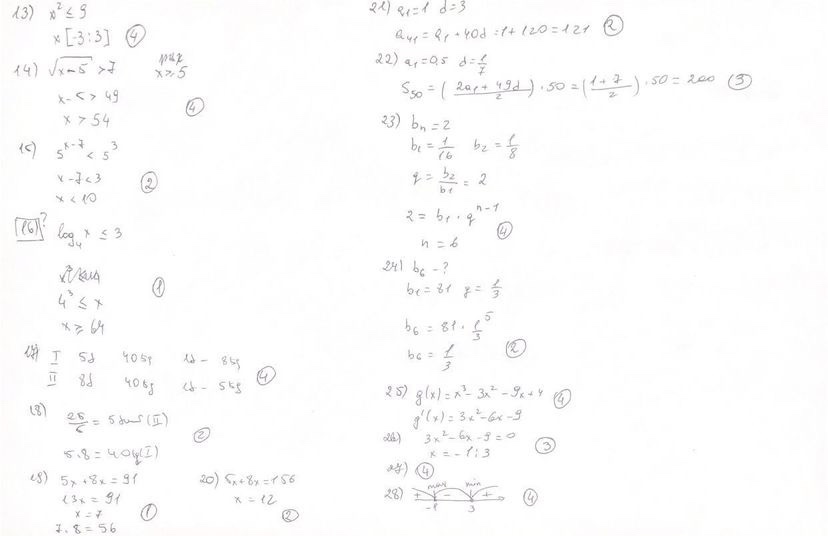 13) x² ≤ 9
x [-3;3] ④
14) √x-5 > 7
x ≥ 5
x-5 > 49
x > 54 ④
15) 5^(x-7) < 5³
x-7 < 3
x < 10 ②
16)? log₄ x ≤ 3
4³ ≤ x
x ≥ 64 ①
17) I 5d 40
II 8d 40 ④
18) 25/6 = 5 (II)
5·8 = 40 (I) ②
19) 5x+8x = 91
13x = 91
x = 7
7·8 = 56 ①
20) 5x+8x = 156
x = 12 ②
21) a₁=1 d=3
a₄₁ = a₁ + 40d = 1+120 = 121 ②
22) a₁=0,5 d=1/7
S₅₀ = (2a₁+49d/2)·50 = (1+7/2)·50 = 200 ③
23) bₙ = 2
b₁ = 1/16 b₂ = 1/8
q = b₂/b₁ = 2
2 = b₁·q^(n-1)
n = 6 ④
24) b₆ - ?
b₁ = 81 q = 1/3
b₆ = 81·1/3⁵
b₆ = 1/3 ②
25) g(x) = x³-3x²-9x+4 ④
g'(x) = 3x²-6x-9
26) 3x²-6x-9=0
x = -1;3 ③
27) ④
28) + max - min +
-1 3 ④